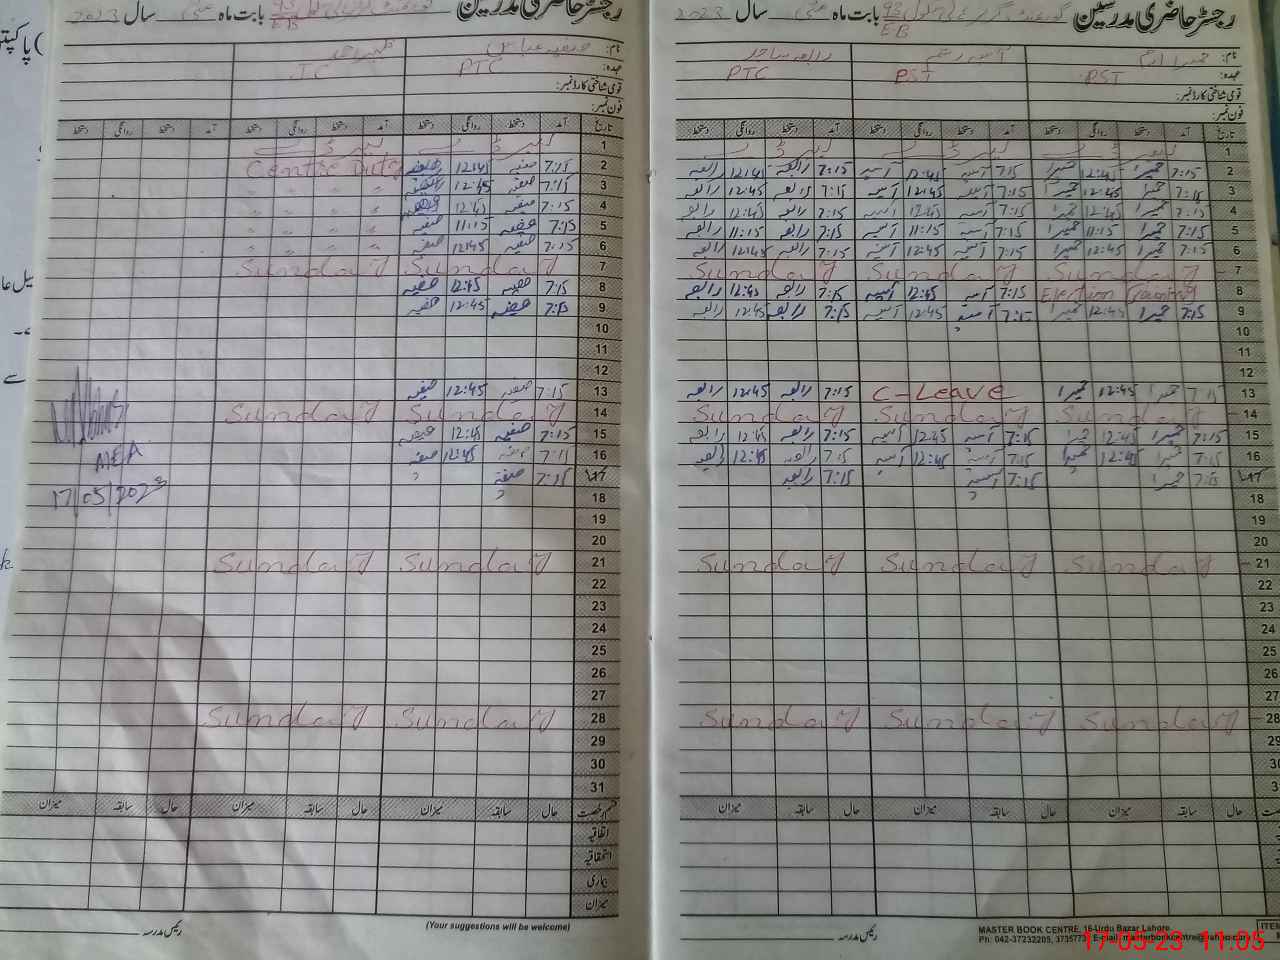 رجسٹر حاضری مدرسین بابت ماہ مئی سال 2023
93
EB
نام:
عہدہ: PST PST PTC
قومی شناختی کارڈ نمبر:
فون نمبر:
تاریخ آمد دستخط روانگی دستخط آمد دستخط روانگی دستخط آمد دستخط روانگی دستخط
1 لیبر ڈے لیبر ڈے لیبر ڈے
2 7:15 حمیرا 12:45 حمیرا 7:15 آسیہ 12:45 آسیہ 7:15 رابعہ 12:45 رابعہ
3 7:15 حمیرا 12:45 حمیرا 7:15 آسیہ 12:45 آسیہ 7:15 رابعہ 12:45 رابعہ
4 7:15 حمیرا 12:45 حمیرا 7:15 آسیہ 12:45 آسیہ 7:15 رابعہ 12:45 رابعہ
5 7:15 حمیرا 11:15 حمیرا 7:15 آسیہ 11:15 آسیہ 7:15 رابعہ 11:15 رابعہ
6 7:15 حمیرا 12:45 حمیرا 7:15 آسیہ 12:45 آسیہ 7:15 رابعہ 12:45 رابعہ
7 Sunday Sunday Sunday
8 Election 7:15 آسیہ 12:45 آسیہ 7:15 رابعہ 12:45 رابعہ
9 7:15 حمیرا 12:45 حمیرا 7:15 آسیہ 12:45 آسیہ 7:15 رابعہ 12:45 رابعہ
10
11
12
13 7:15 حمیرا 12:45 حمیرا C-Leave 7:15 رابعہ 12:45 رابعہ
14 Sunday Sunday Sunday
15 7:15 حمیرا 12:45 حمیرا 7:15 آسیہ 12:45 آسیہ 7:15 رابعہ 12:45 رابعہ
16 7:15 حمیرا 12:45 حمیرا 7:15 آسیہ 12:45 آسیہ 7:15 رابعہ 12:45 رابعہ
17 7:15 حمیرا 7:15 آسیہ 7:15 رابعہ
18
19
20
21 Sunday Sunday Sunday
22
23
24
25
26
27
28 Sunday Sunday Sunday
29
30
3
حال سابقہ میزان حال سابقہ میزان حال سابقہ میزان
رئیس مدرسہ
MASTER BOOK CENTRE, 16-Urdu Bazar Lahore.
Ph: 042-37232205, E-mail:
ITE
17-05-23 11:05
رجسٹر حاضری مدرسین بابت ماہ مئی سال 2023
93
EB
نام:
عہدہ: PTC
قومی شناختی کارڈ نمبر:
فون نمبر:
تاریخ آمد دستخط روانگی دستخط آمد دستخط روانگی دستخط آمد دستخط روانگی دستخط
1 لیبر ڈے لیبر ڈے
2 7:15 صفیہ 12:45 صفیہ Centre Duty
3 7:15 صفیہ 12:45 صفیہ " " " "
4 7:15 صفیہ 12:45 صفیہ " " " "
5 7:15 صفیہ 11:15 صفیہ " " " "
6 7:15 صفیہ 12:45 صفیہ " " " "
7 Sunday Sunday
8 7:15 صفیہ 12:45 صفیہ
9 7:15 صفیہ 12:45 صفیہ
10
11
12
13 7:15 صفیہ 12:45 صفیہ
14 Sunday Sunday
15 7:15 صفیہ 12:45 صفیہ
16 7:15 صفیہ 12:45 صفیہ
17 7:15 صفیہ
MEA
17/05/2023
18
19
20
21 Sunday Sunday
22
23
24
25
26
27
28 Sunday Sunday
29
30
31
قسم رخصت حال سابقہ میزان حال سابقہ میزان حال سابقہ میزان
اتفاقیہ
استحقاقیہ
بیماری
میزان
رئیس مدرسہ
(Your suggestions will be welcome)